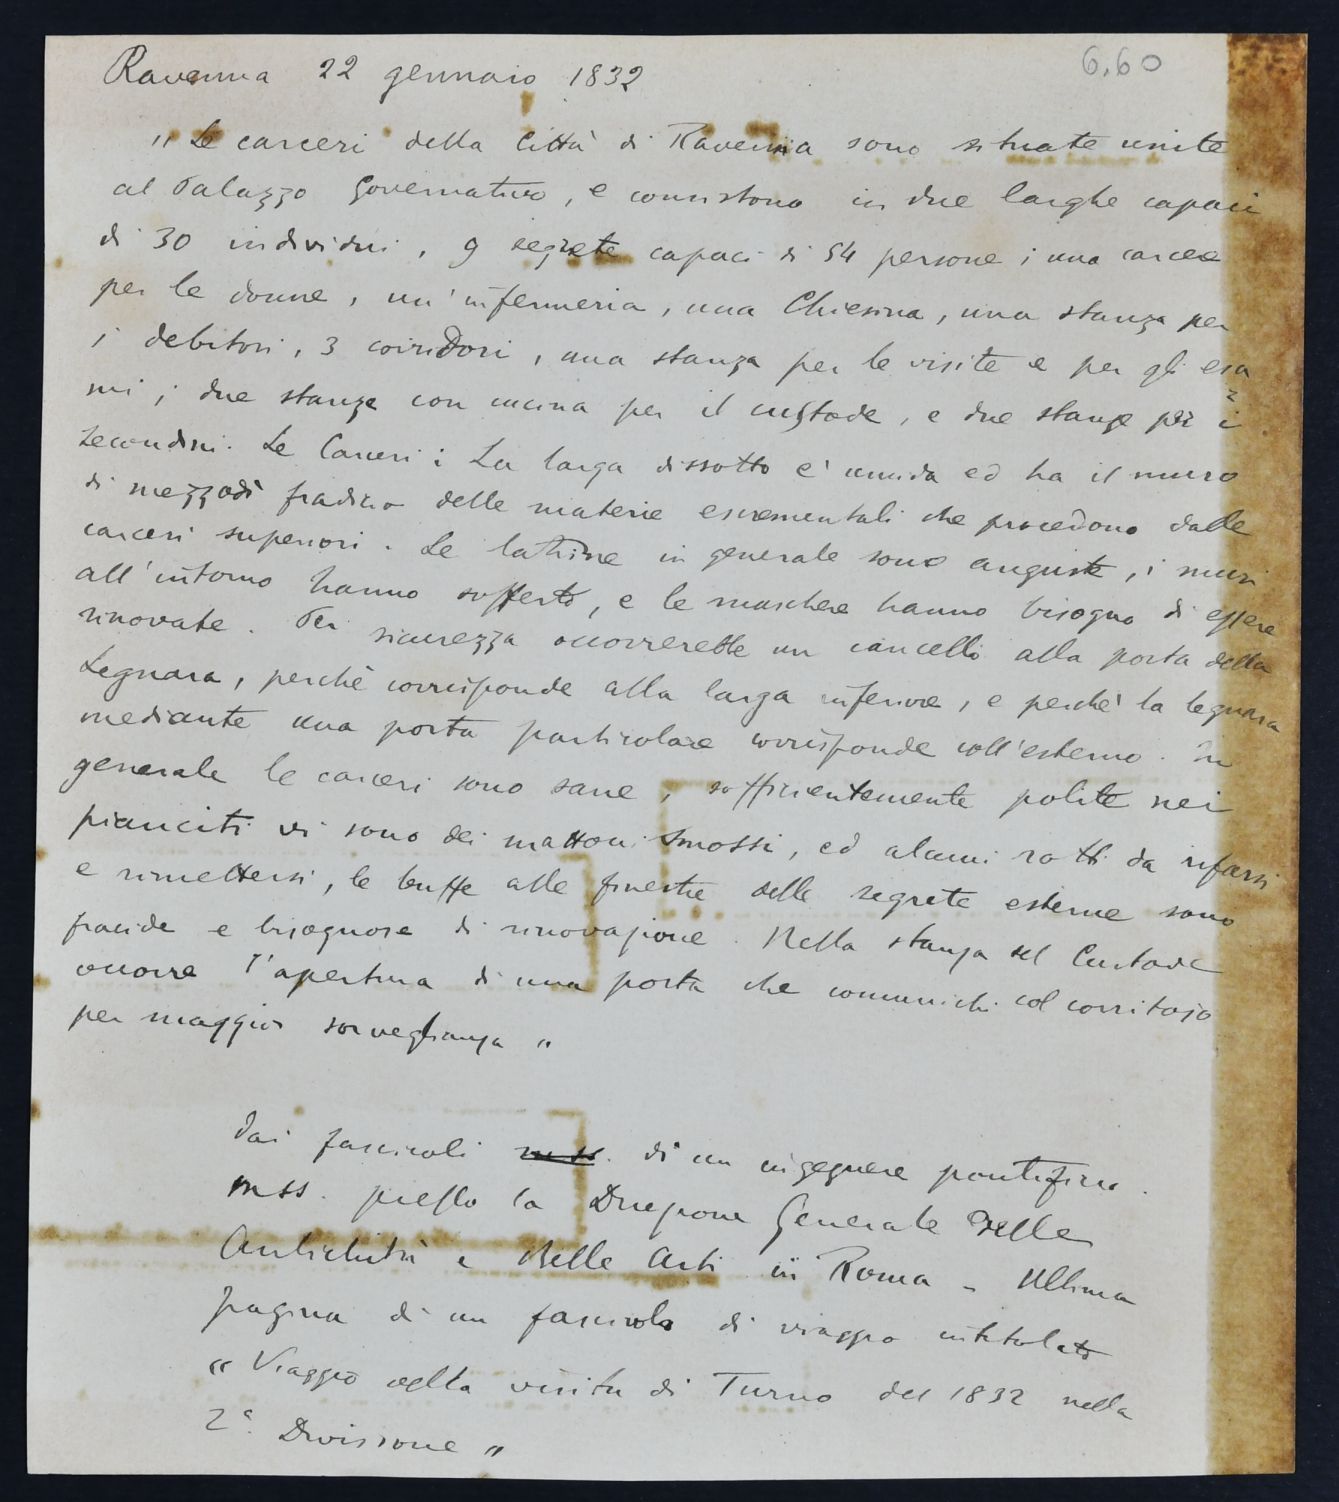 6,60
Ravenna 22 gennaio 1832
"Le carceri della Città di Ravenna sono situate unite
al Palazzo Governativo, e consistono in due larghe capaci
di 30 individui, 9 segrete capaci di 54 persone; una carcere
per le donne, un'infermeria, una Chiesina, una stanza per
i debitori, 3 corridori, una stanza per le visite e per gli esa
mi; due stanze con cucina per il custode, e due stanze per i
secondini. Le Carceri: La larga dissotto e' umida ed ha il muro
di mezzodì fradicio delle materie escrementali che procedono dalle
carceri superiori. Le latrine in generale sono anguste, i muri
all'intorno hanno sofferto, e le maschere hanno bisogno di essere
rinovate. Per sicurezza occorrerebbe un cancello alla porta della
Legnara, perchè corrisponde alla larga inferiore, e perchè la legnara
mediante una porta particolare corrisponde coll'esterno. In
generale le carceri sono sane, sofficientemente polite nei
pianciti vi sono dei mattoni smossi, ed alcuni rotti da rifarsi
e rimettersi, le buffe alle finestre delle segrete esterne sono
fracide e bisognose di rinnovazione. Nella stanza del Custode
occorre l'apertura di una porta che comunichi col corritojo
per maggior sorveglianza"
Dai fascicoli mss. di un ingegnere pontificio.
mss. presso la Direzione Generale delle
Antichità e Belle Arti in Roma - Ultima
pagina di un fascicolo di viaggio intitolato
"Viaggio della visita di Turno del 1832 nella
2ª Divisione"